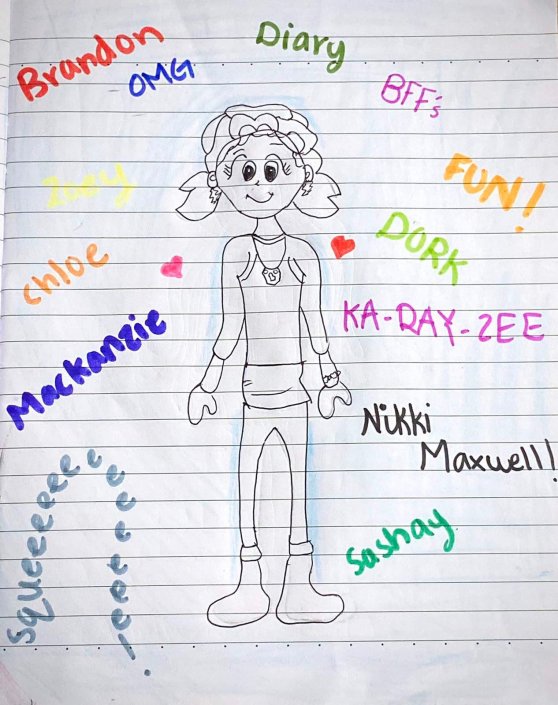 Brandon
OMG
Diary
BFF's
Zoey
FUN!
chloe
DORK
Mackanzie
KA-RAY-ZEE
Nikki
Maxwell!
Sashay